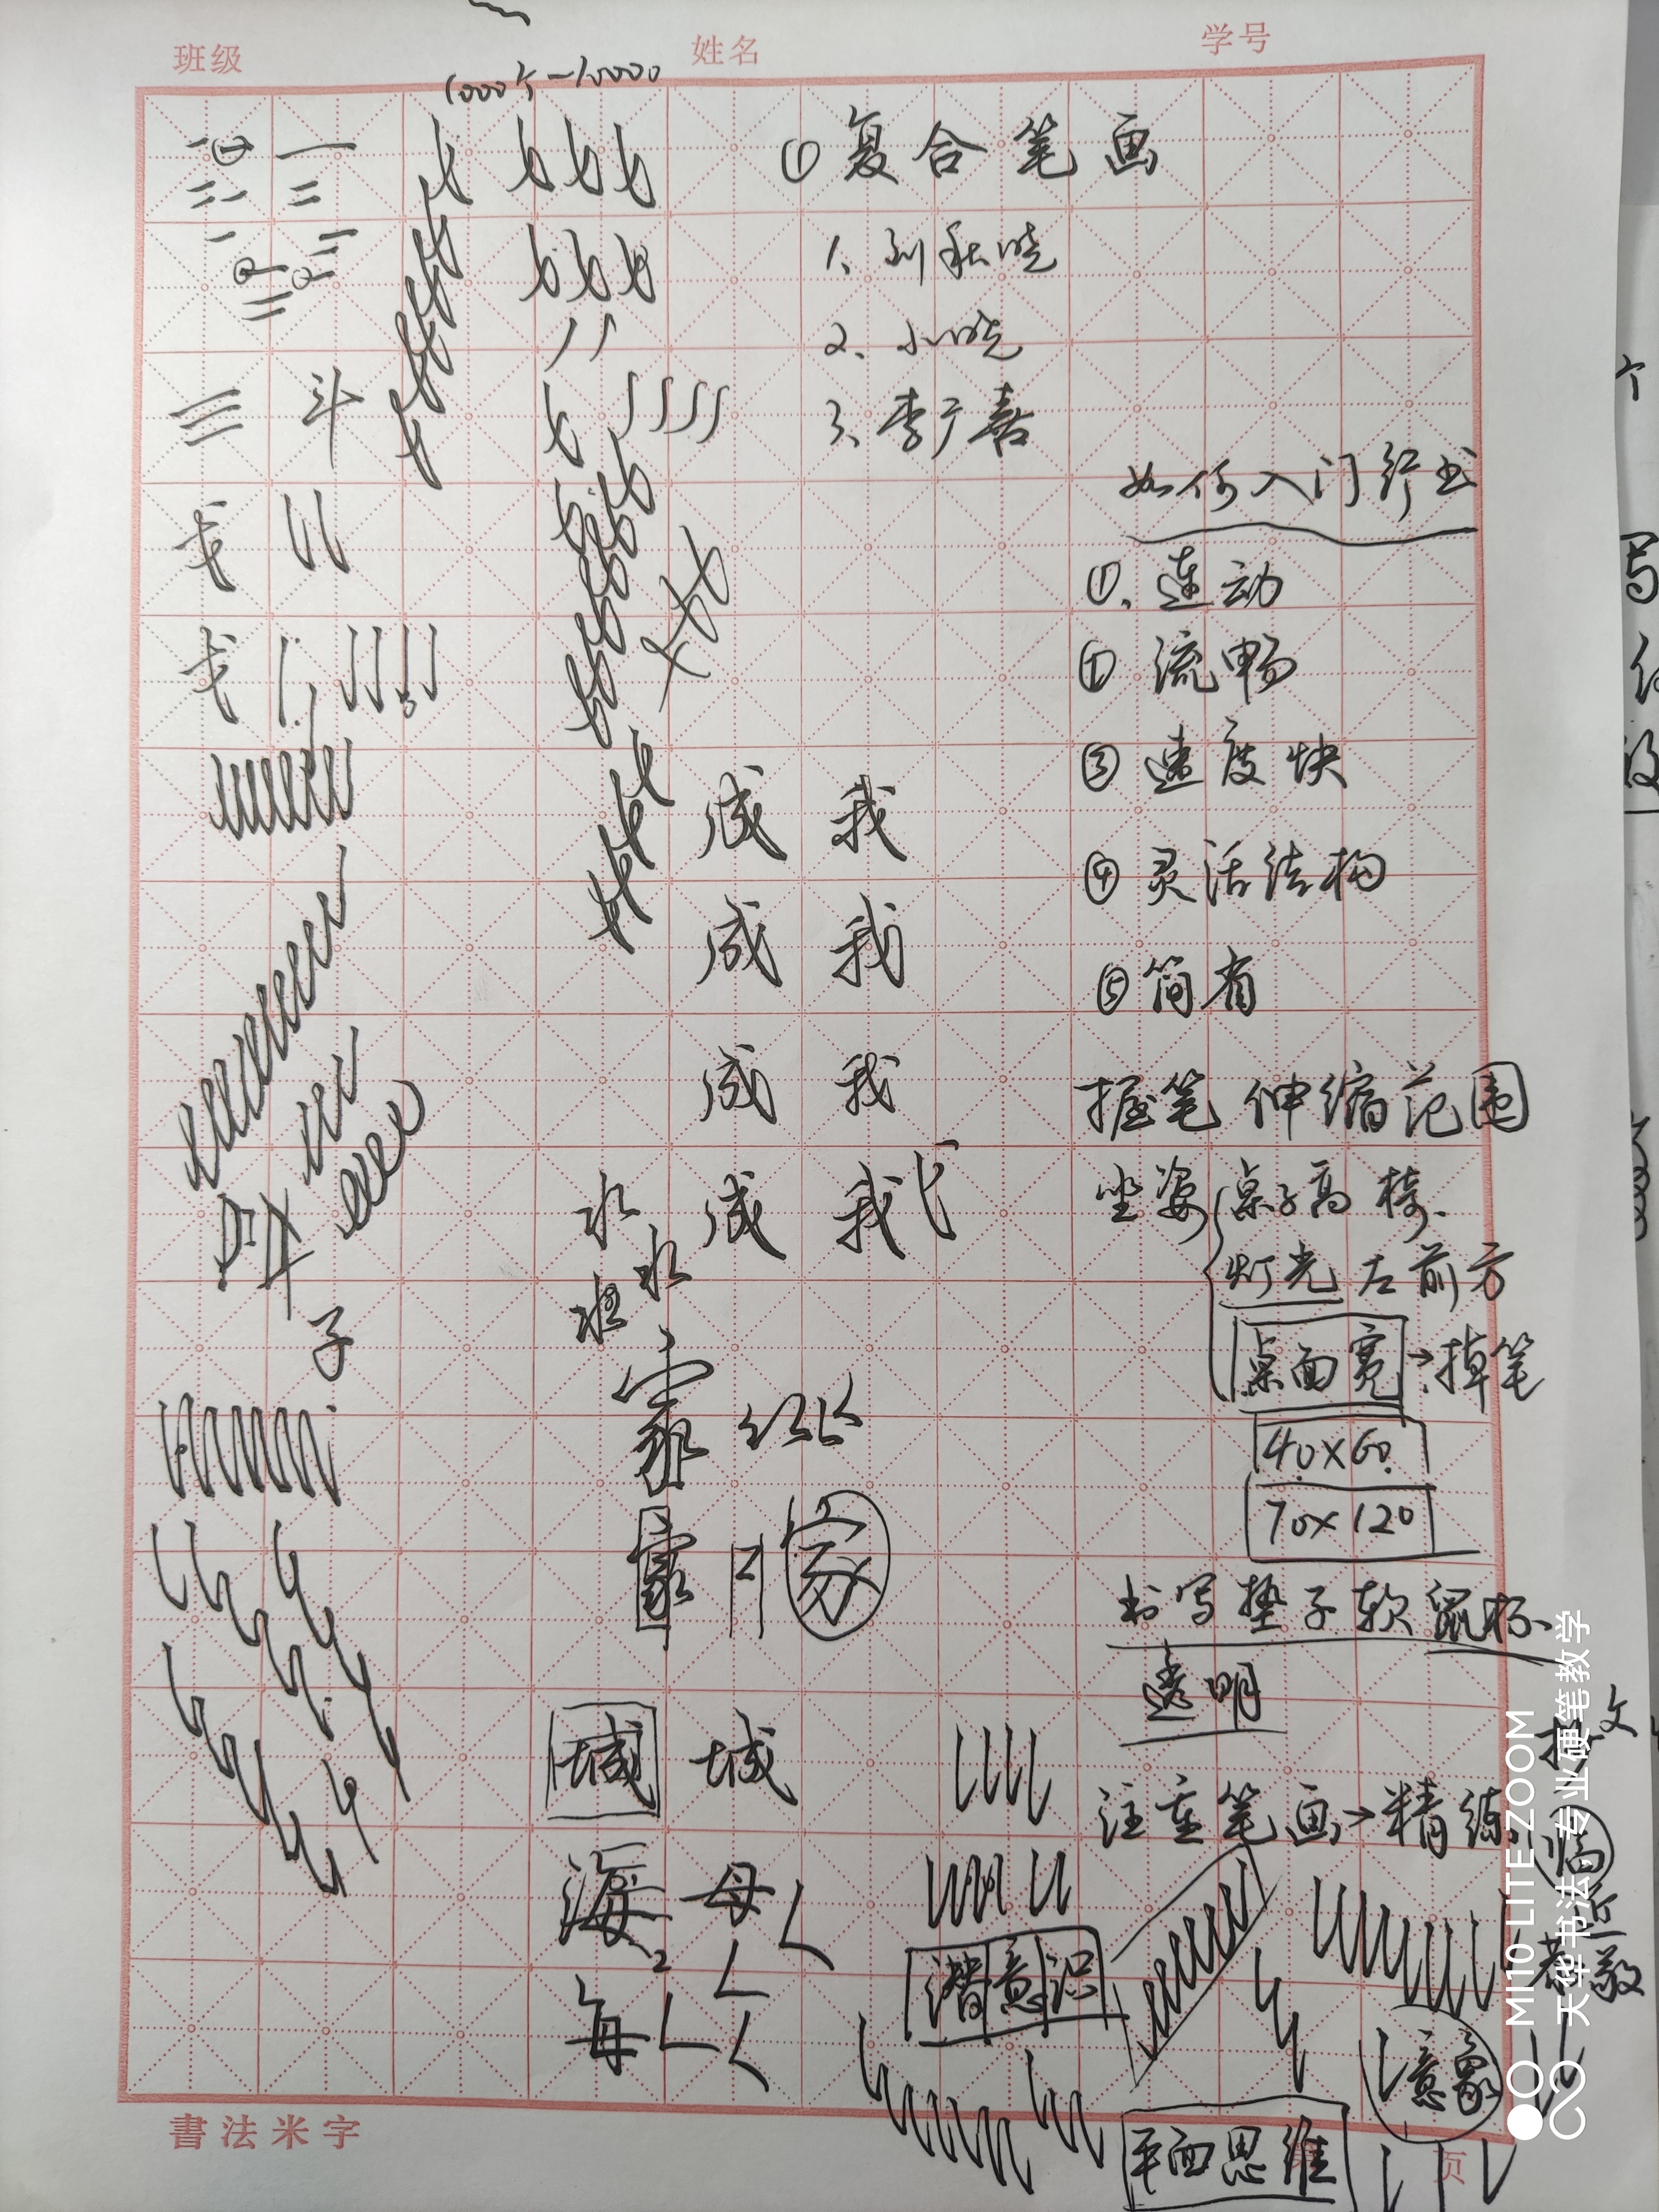 班级 姓名 学号
1000个－10000
①复合笔画
1、刘秋晓
2、小晓
3、李广喜
三 斗
如何入门行书
①、连动
②流畅
③速度快
④灵活结构
⑤简省
成 我
成 我
成 我
成 我
握笔 伸缩范围
坐姿 桌子高 椅
灯光 左前方
桌面宽→掉笔
40×60
70×120
水
水
子
家 纵
家
书写垫子软 鼠标
透明
城 城
注重笔画→精练
海 母
每
潜意识
临
恭敬
意象
平面思维
書法米字
页
MI 10 LITE ZOOM
天华书法，专业硬笔教学